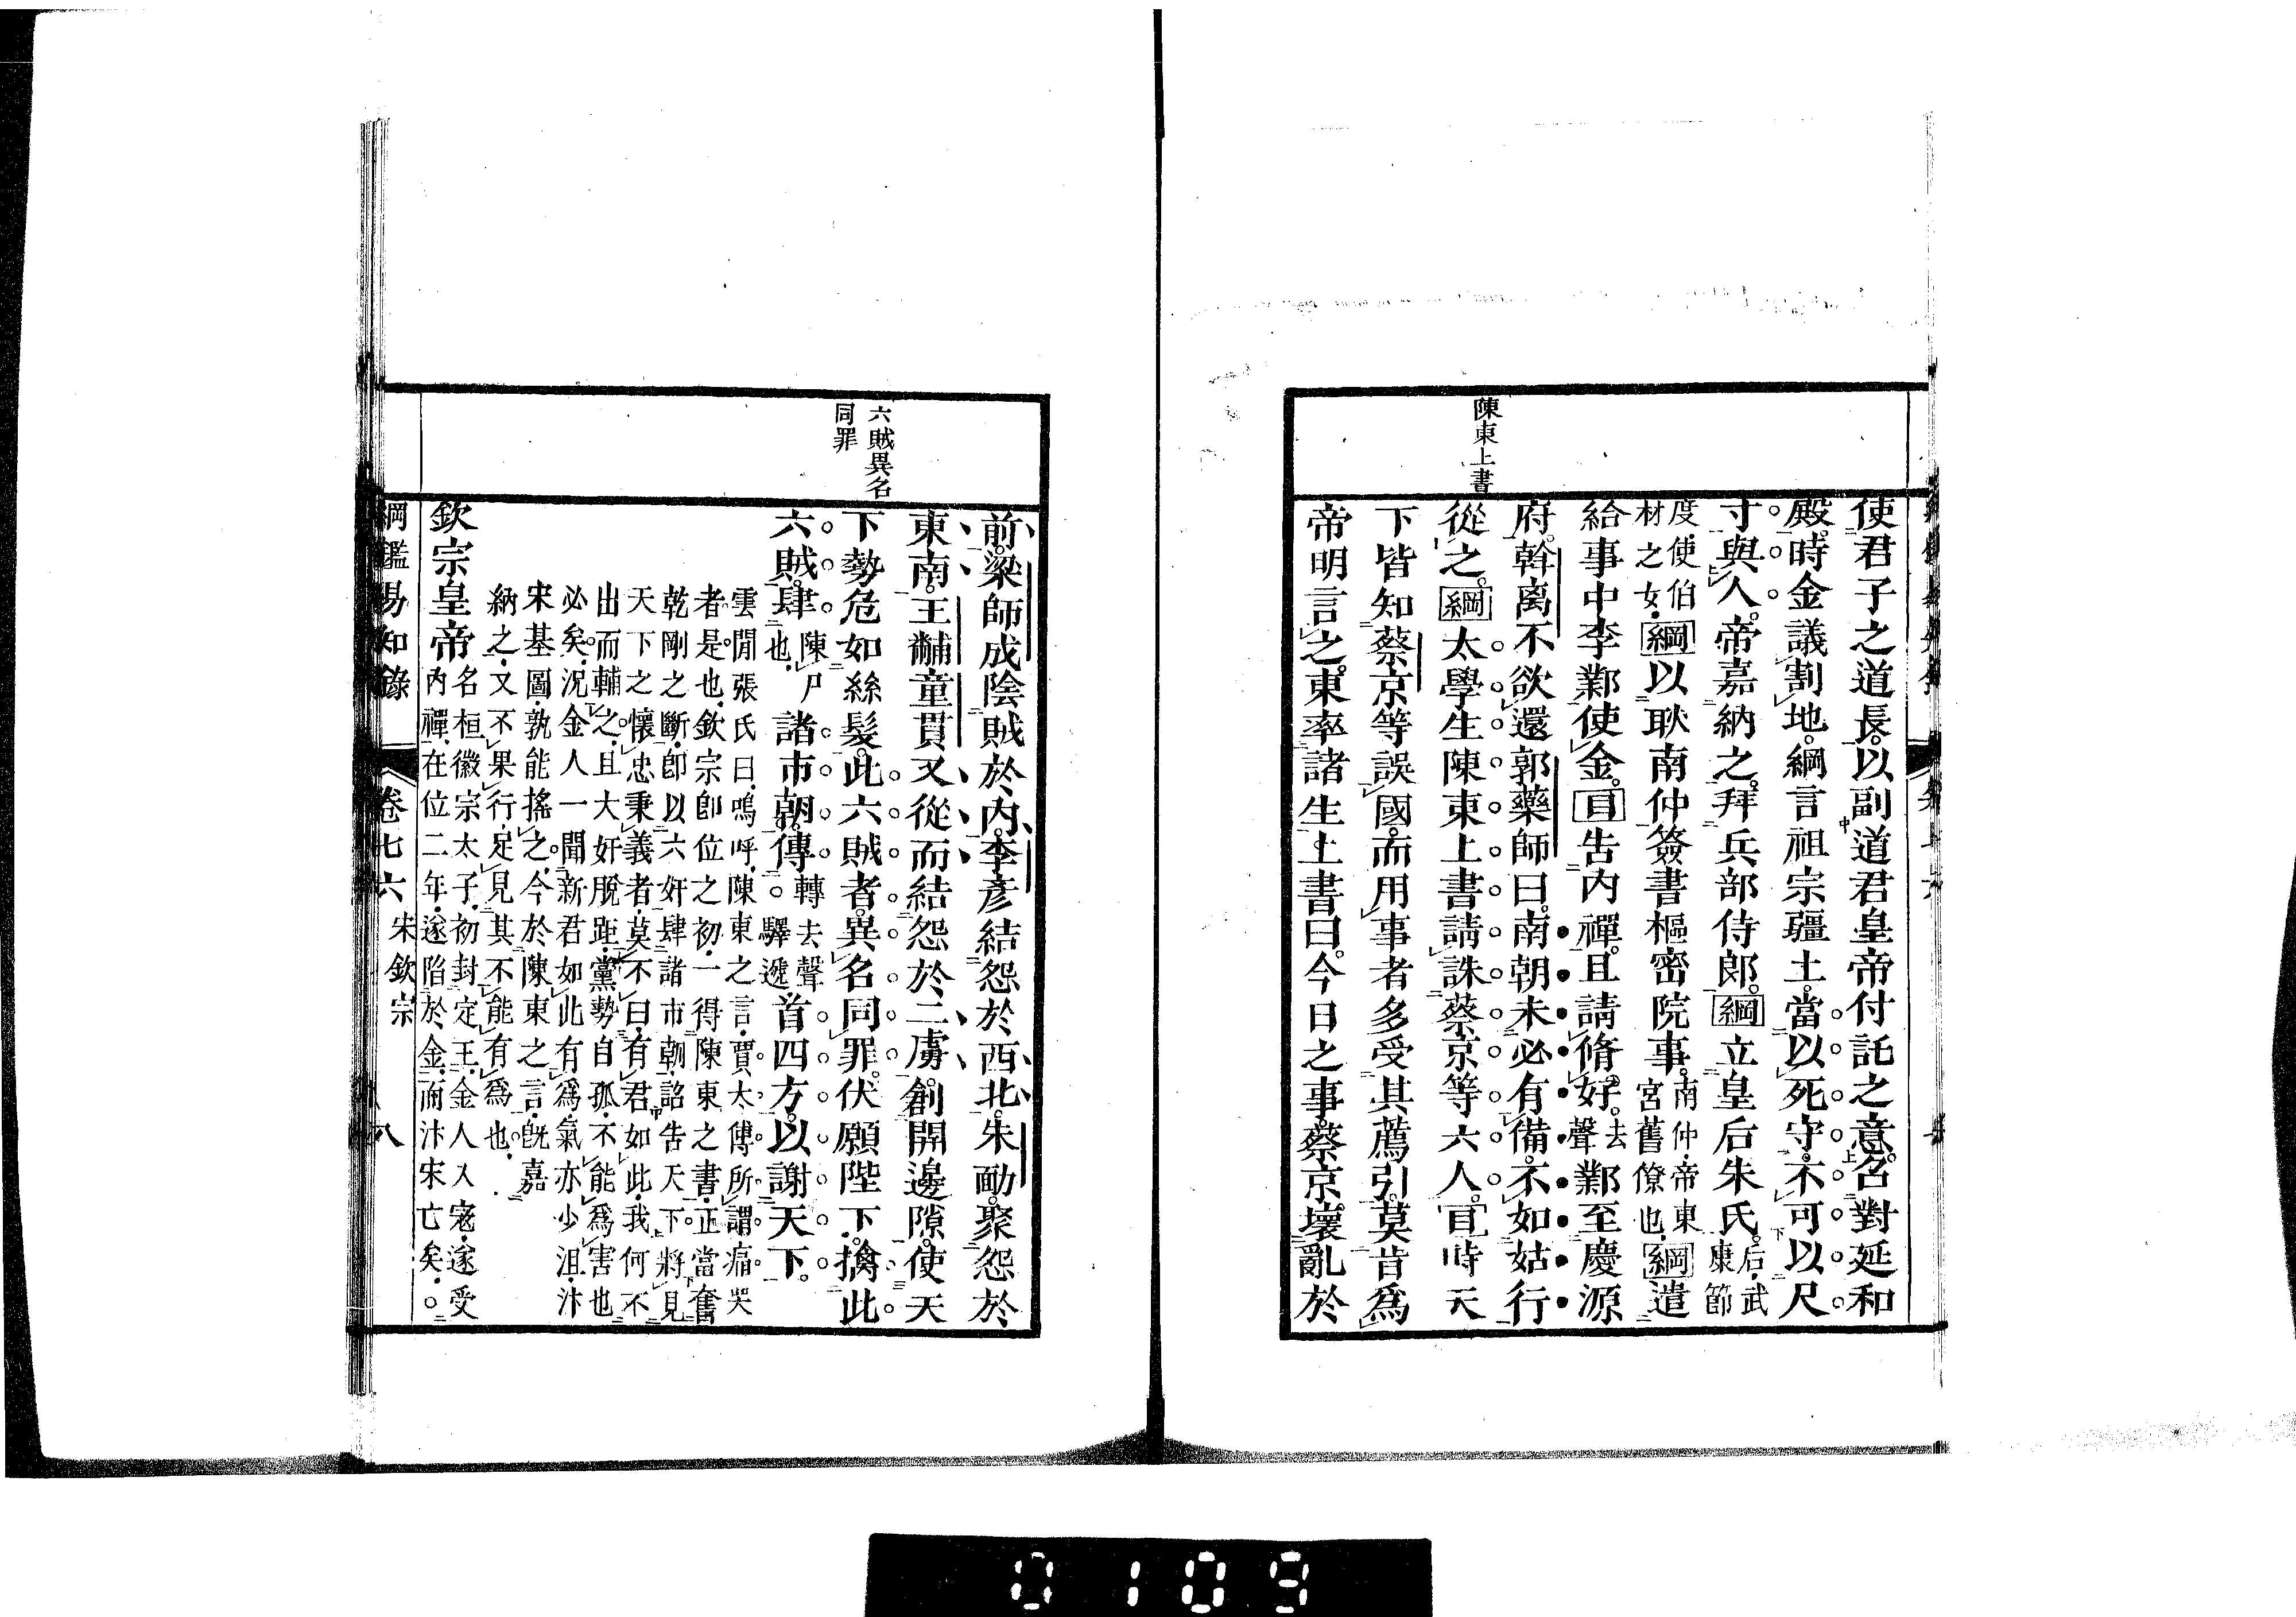 陳東上書
使君子之道長。以副道君皇帝付託之意。召對延和
殿。時金議割地。綱言祖宗疆土。當以死守。不可以尺
寸與人。帝嘉納之。拜兵部侍郎。綱立皇后朱氏。后武康節
度使伯材之女。綱以耿南仲簽書樞密院事。南仲帝東宮舊僚也。綱遣
給事中李鄴使金。目告內禪。且請脩好。去聲鄴至慶源
府。斡离不欲還。郭藥師曰。南朝未必有備。不如姑行
從之。綱太學生陳東上書。請誅蔡京等六人。目時天
下皆知蔡京等誤國。而用事者多受其薦引。莫肯爲
帝明言之。東率諸生上書曰。今日之事。蔡京壞亂於
六賊異名
同罪
前。梁師成陰賊於內。李彥結怨於西北。朱勔聚怨於
東南。王黼童貫又從而結怨於二虜。創開邊隙。使天
下勢危如絲髮。此六賊者。異名同罪。伏願陛下。擒此
六賊。肆陳尸也諸市朝。傳轉去聲。驛遞首四方。以謝天下。
雲閒張氏曰。嗚呼。陳東之言。賈太傅所謂痛哭
者是也。欽宗卽位之初。一得陳東之書。正當奮
乾剛之斷。卽以六奸肆諸市朝。詔告天下。將見
天下之懷忠秉義者。莫不曰。有君如此。我何不
出而輔之。且大奸脫距。黨勢自孤。不能爲害也
必矣。況金人一聞新君如此有爲。氣亦少沮。汴
宋基圖。孰能搖之。今於陳東之言。旣嘉
納之。又不果行。足見其不能有爲也。
欽宗皇帝名桓。徽宗太子。初封定王。金人入寇。遂受內禪。在位二年。遂陷於金。而汴宋亡矣。
綱鑑易知錄 卷七六 宋欽宗 八